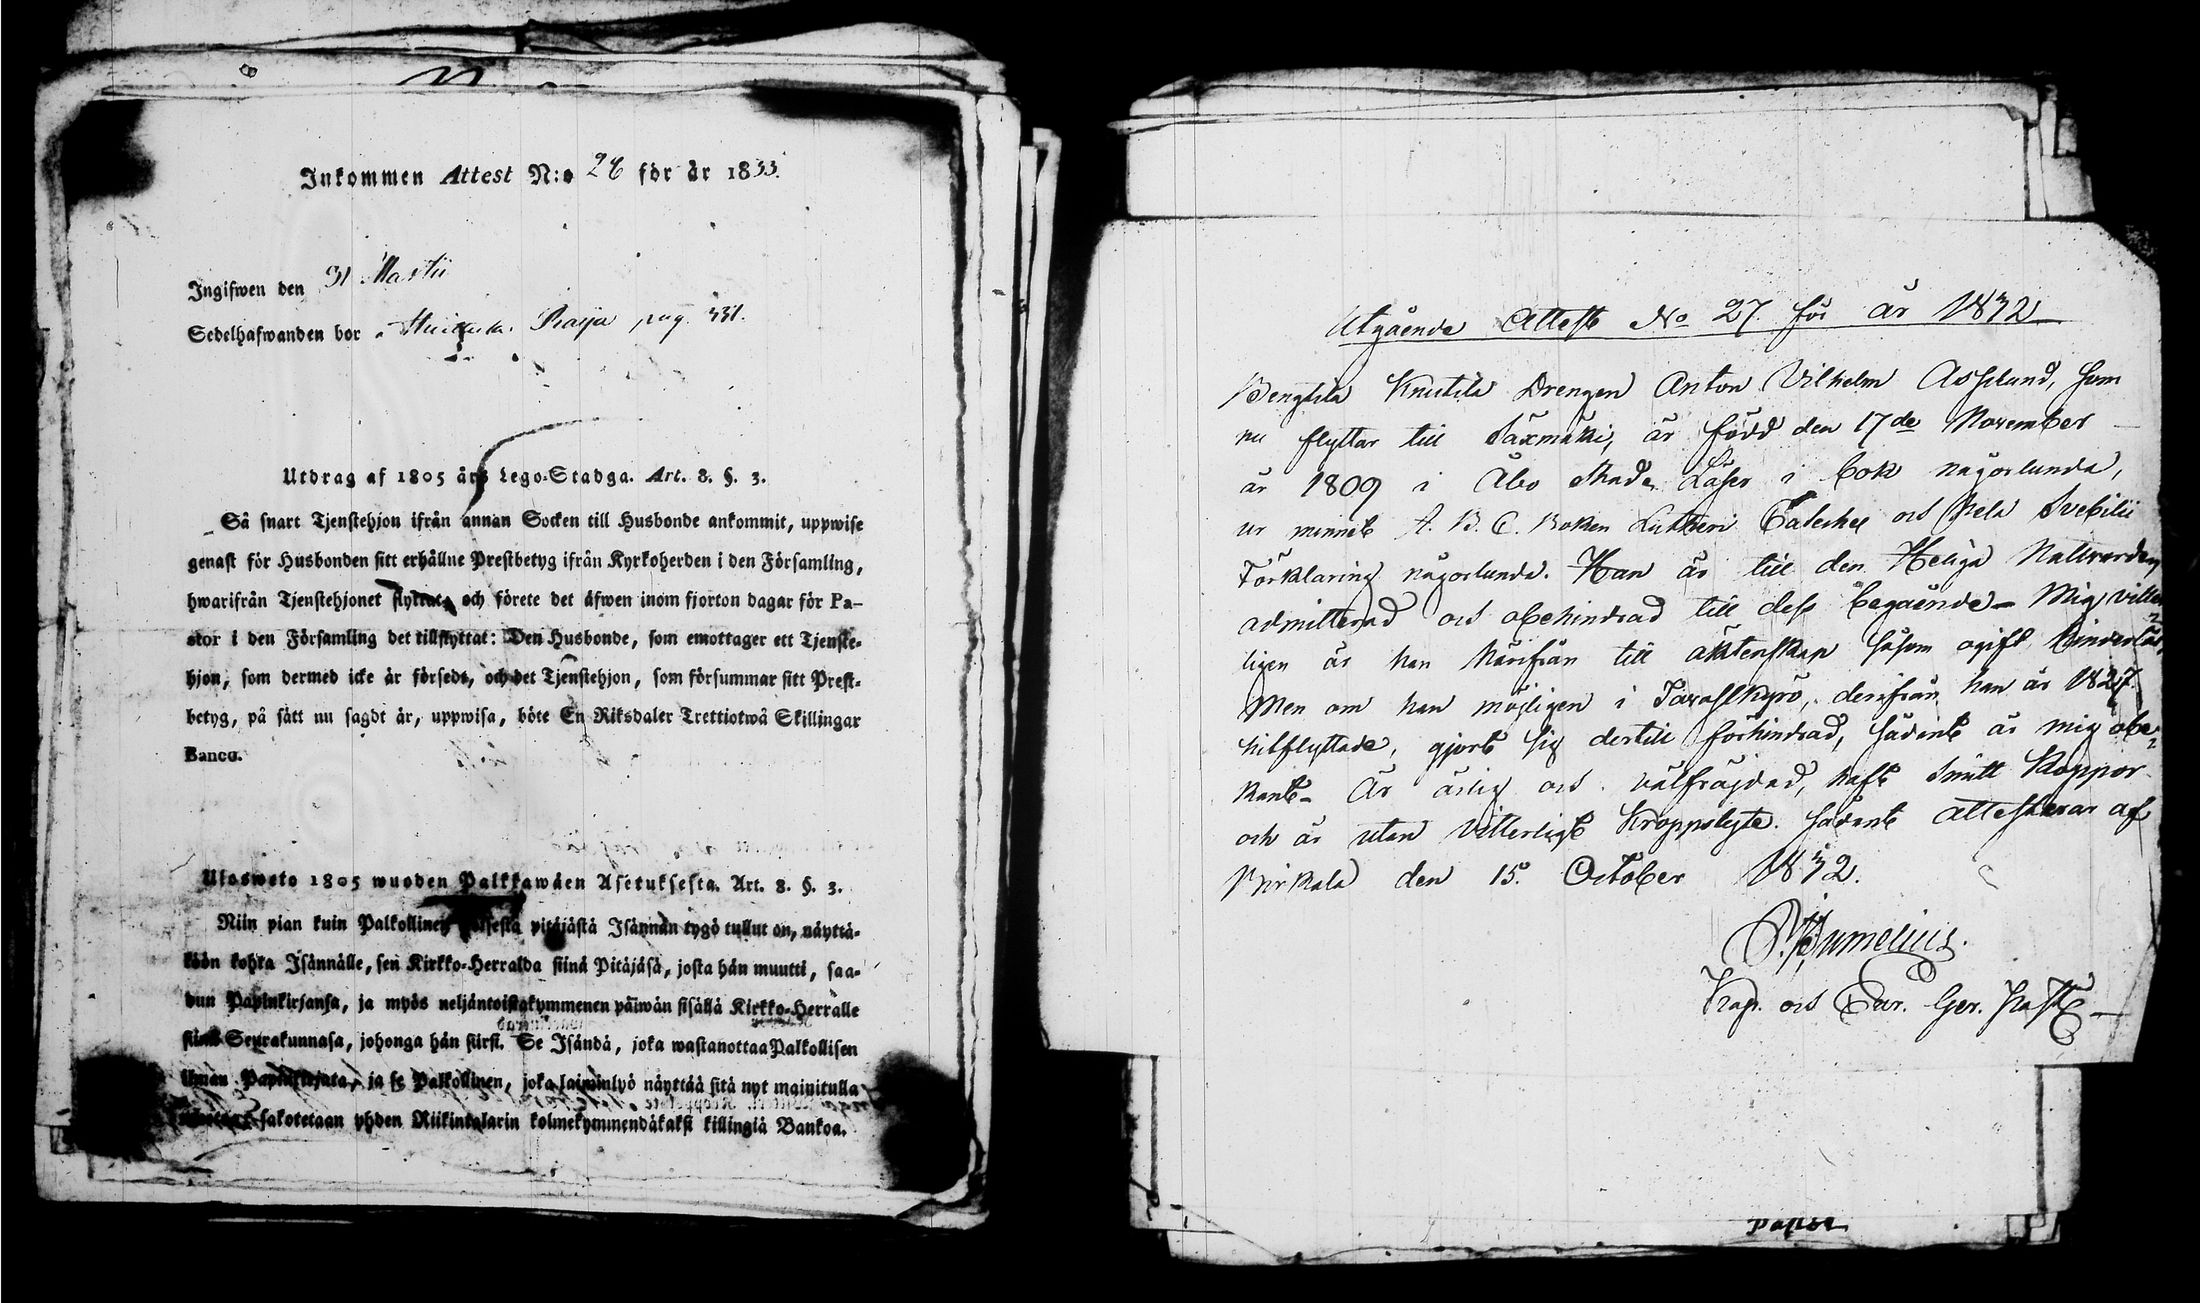 Inkommen Attest N:o 28 för år 1833.
Ingifwen den 31 Martii
Sedelhafwanden bor Raija pag. 331.
Utdrag af 1805 års Lego-Stadga. Art. 8. §. 3.
Så snart Tjenstehjon ifrån annan Socken till Husbonde ankommit, uppwise
genast för Husbonden sitt erhållne Prestbetyg ifrån Kyrkoherden i den Församling,
hwarifrån Tjenstehjonet flyttat, och förete det äfwen inom fjorton dagar för Pa-
stor i den Församling det tillflyttat: Den Husbonde, som emottager ett Tjenste-
hjon, som dermed icke är försedt, och det Tjenstehjon, som försummar sitt Prest-
betyg, på sätt nu sagdt är, uppwisa, böte En Riksdaler Trettiotwå Skillingar
Banco.
Uloswето 1805 wuoden Palkkawäen Asetuksesta. Art. 8. §. 3.
Niin pian kuin Palkollinen toisesta pitäjästä Isännän tygö tullut on, näyttä-
köön kohta Isännälle, sen Kirkko-Herralda siinä Pitäjäsä, josta hän muutti, saa-
dun Papinkirjansa, ja myös neljäntoistakymmenen päiwän sisällä Kirkko-Herralle
siinä Seurakunnasa, johonga hän siirsi. Se Isändä, joka wastanottaa Palkollisen
ilman Papinkirjata, ja se Palkollinen, joka laiminlyö näyttää sitä nyt mainitulla
sakotetaan yhden Riikintalarin kolmekymmendäkaksi killingiä Bankoa.
Utgående Attest No 27 för år 1832
Bengtila Knutila Drengen Anton Vilhelm Asplund, som
nu flyttar till Säxmäki, är född den 17de November
år 1809 i Åbo stad. Läser i bok någorlunda,
ur minnet A. B. C. Boken Lutheri Cateches och hela Svebilii
Förklaring någorlunda. Han är till den Heliga Nattvarden
admitterad och obehindrad till dess begående – Mig vitter
ligen är han härifrån till äktenskap såsom ogift hinderlös,
Men om han möjligen i Tavastkyrö, derifrån han år 1827
hitflyttade, gjort sig dertill förhindrad, sådant är mig obe-
kant – Är ärlig och välfräjdad, haft Smitt Koppor
och är utan vitterligt Kroppslyte. Sådant attesterar af
Birkala den 15. October 1832.
Kap. och